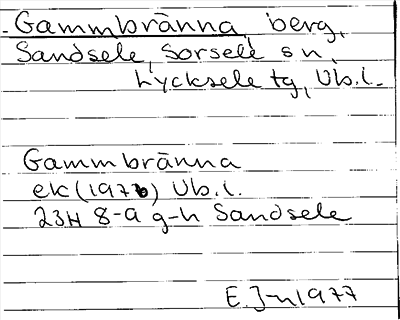 Gammbränna, berg,
Sandsele, Sorsele sn,
Lycksele tg, Vb.l.
Gammbränna
ek (1976) Vb.l.
23H 8-a g-h Sandsele
E J-n 1977